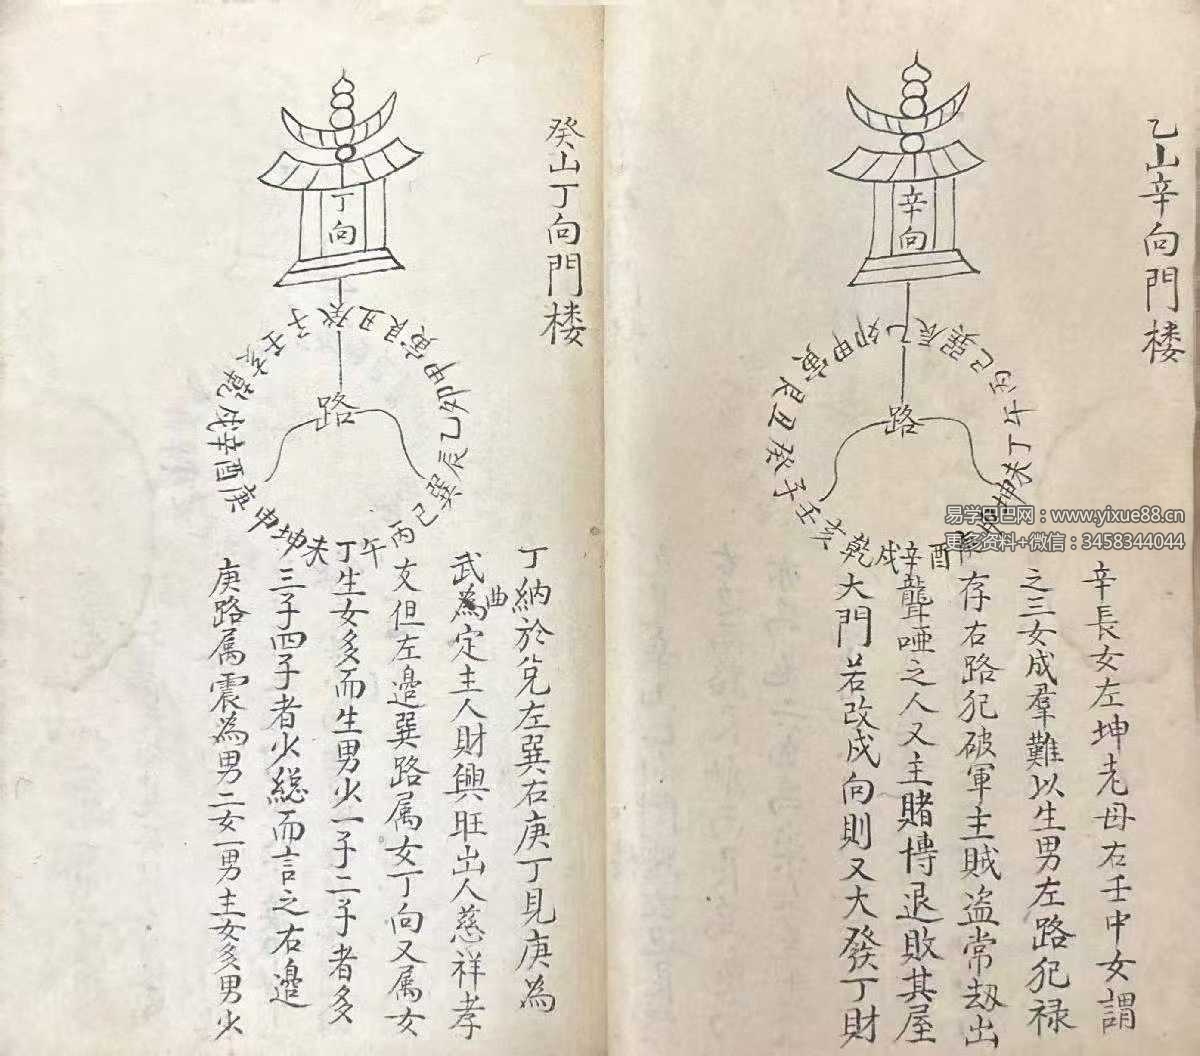 乙山辛向門楼
辛向
乙辰巽巳丙午丁未坤申
酉辛戌乾亥壬子癸丑艮寅甲卯
路
辛長女左坤老母右壬中女謂
之三女成羣難以生男左路犯禄
存右路犯破軍主賊盗常刼出
聾哑之人又主賭博退敗其屋
大門若改戌向則又大發丁財
癸山丁向門楼
丁向
癸丑艮寅甲卯乙辰巽巳丙午
丁未坤申庚酉辛戌乾亥壬子
路
丁納於兑左巽右庚丁見庚為
武曲為定主人財興旺出人慈祥孝
友但左邉巽路属女丁向又属女
生女多而生男火一子二子者多
三子四子者火總而言之右邉
庚路属震為男二女一男主女多男火
易学巴巴网：www.yixue88.cn
更多资料+微信：3458344044